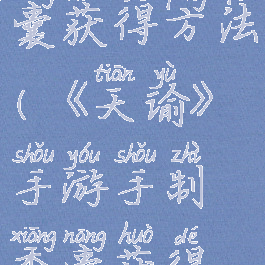 囊获得方法
tiān yù
(《天谕》
shǒu yóu shǒu zhì
手游手制
xiāng náng huò dé